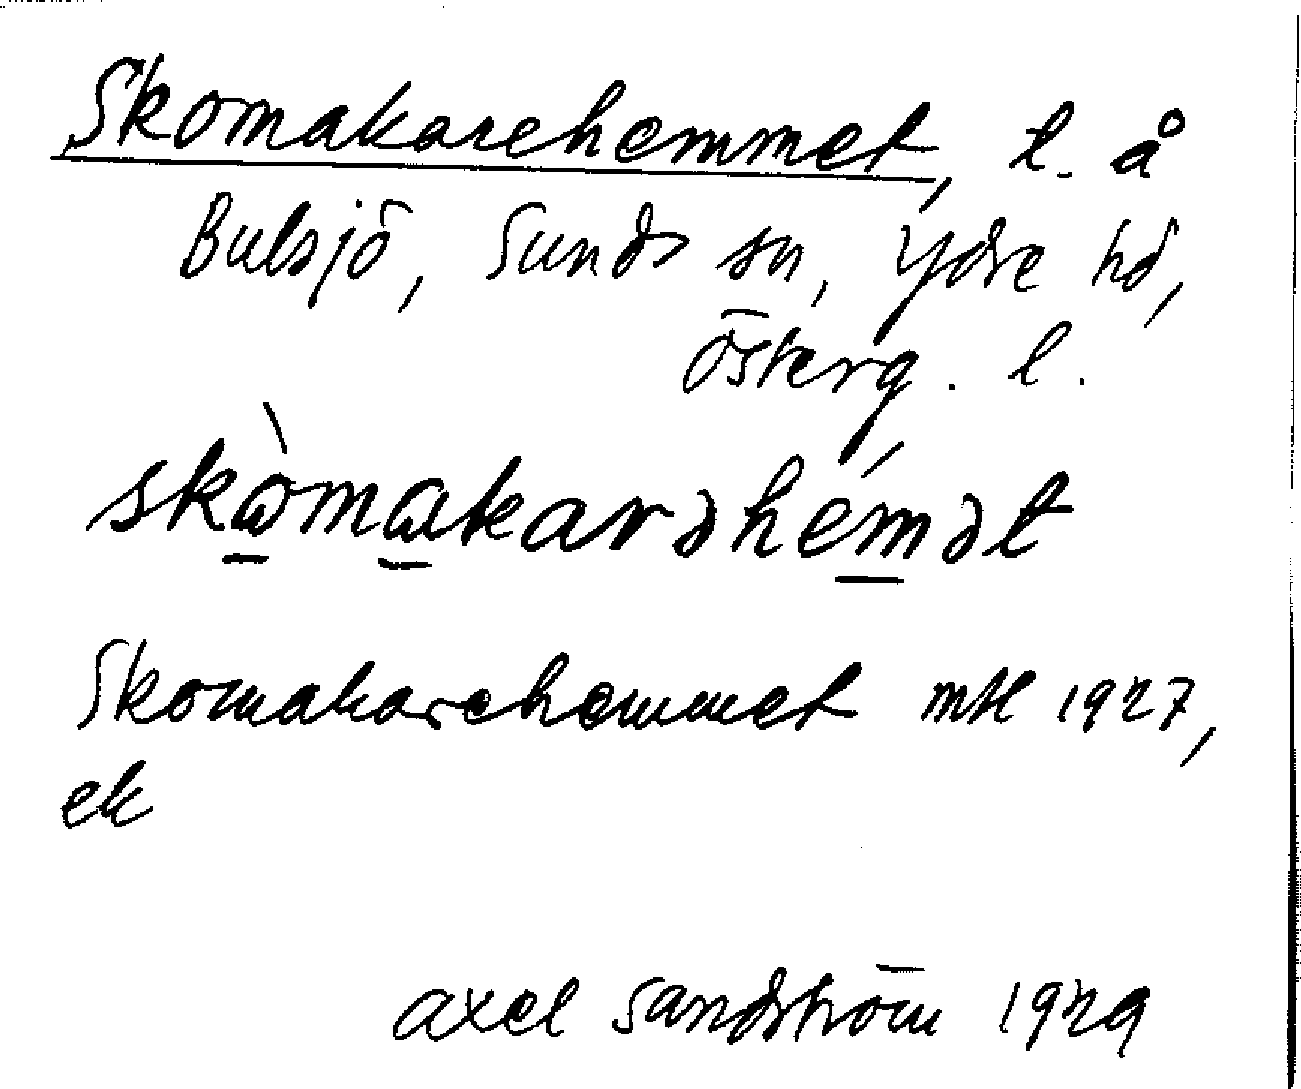 Skomakarehemmet, l. å
Bulsjö, Sunds sn, Ydre hd,
Österg. l.
skòmakarəhémət
Skomakarehemmet mtl 1927,
ek
Axel Sandström 1929